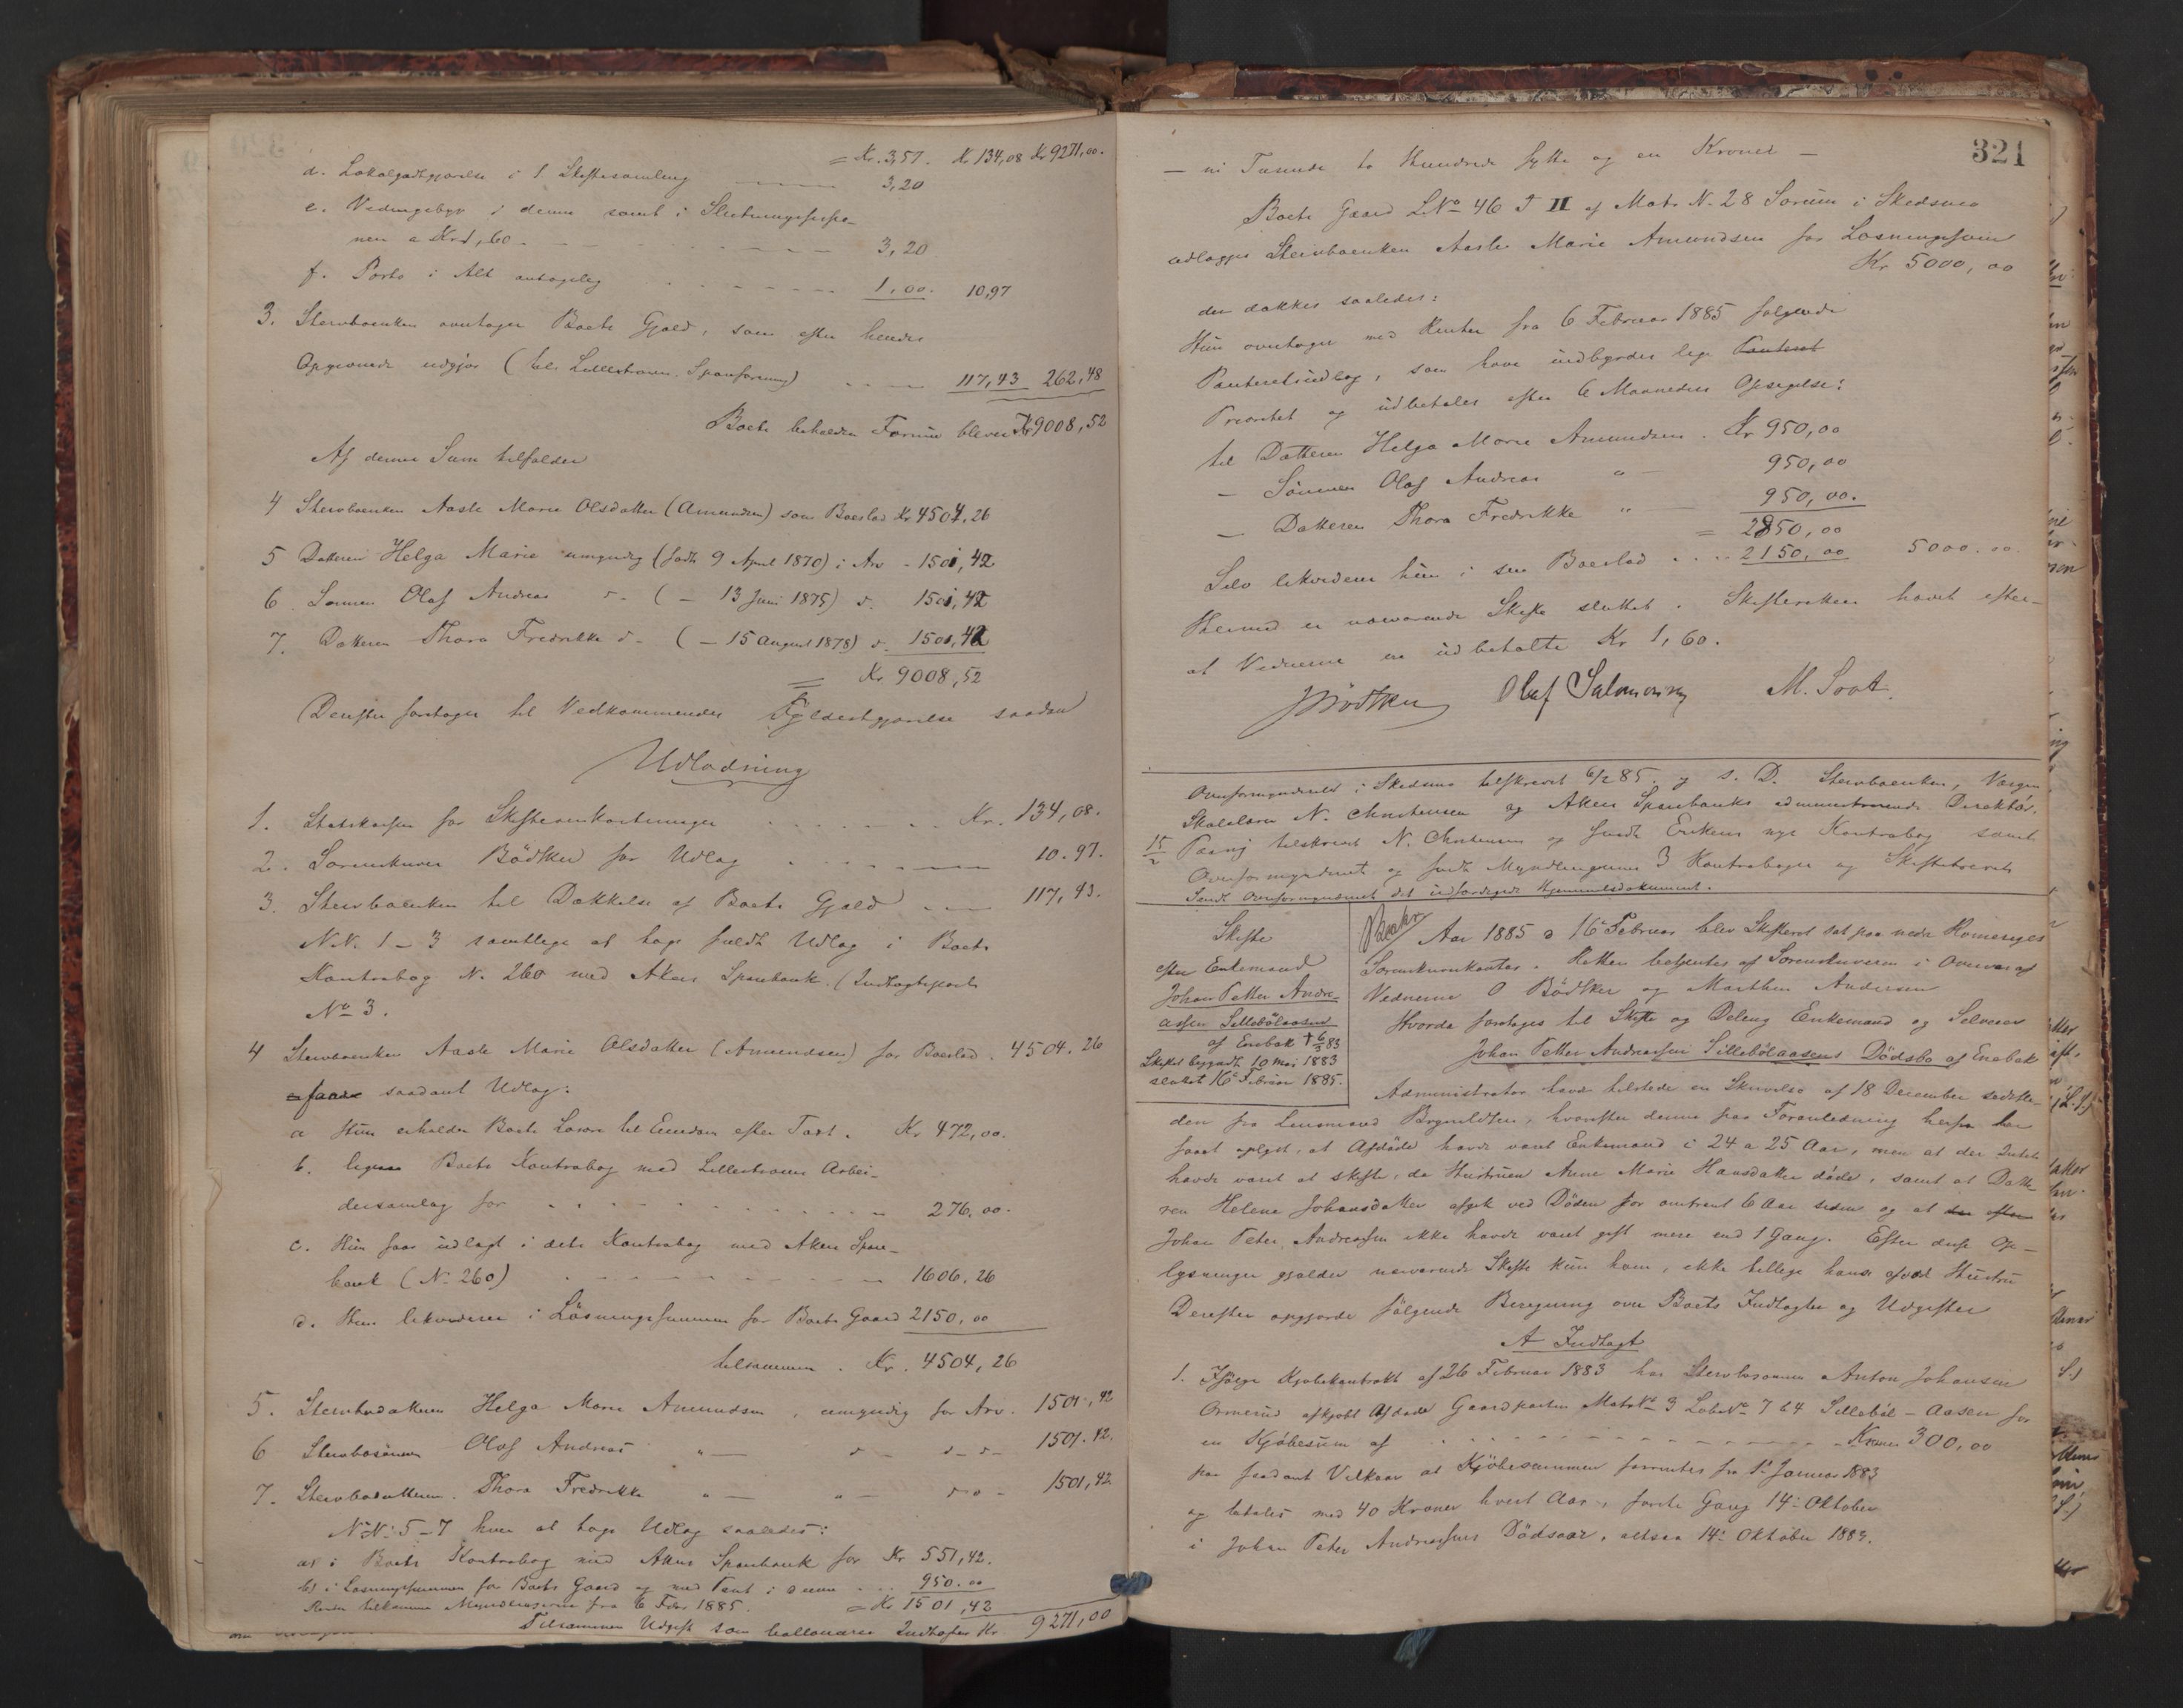 = Kr. 3,57. Kr 134,08 Kr 9271,00.
d. Lokalgodtgjørelse i 1 Skiftesamling 3,20
e. Vidnegebyr i denne samt i Slutningsseqvi-
nen a Kr 1,60 3,20
f. Porto i Alt antagelig 1,00. 10,97
3. Stervboenken overtager Boets Gjæld, som efter hendes
Opgivende udgjør (til Lillestrøms Spareforening) 117,43 262,48
Boets beholdne Formue bliver Kr 9008,52
Af denne Sum tilfalder
4 Stervboenken Aaste Marie Olsdatter (Amundsen) som Boeslod Kr 4504,26
5 Datteren Helga Marie umyndig (født 9 April 1870) i Arv - 1501,42
6. Sønnen Olaf Andreas d- ( - 13 Juni 1875) d. 1501,42
7. Datteren Thora Fredrikke d- ( - 15 August 1878) d. 1501,42
= Kr. 9008,52
Derefter foretages til Vedkommendes Fyldestgjørelse saadan
Udlodning
1. Statskassen for Skifteomkostninger Kr. 134,08.
2. Sorenskriver Bödtker for Udlæg 10.97.
3. Stervboenken til Dækkelse af Boets Gjæld 117,43.
N.N. 1-3 samtlige at tage fuldt Udlæg i Boets
Kontrabog N. 260 med Akers Sparebank. (Indtægtspost
No 3.
4 Stervboenken Aaste Marie Olsdatter (Amundsen) for Boeslod. 4504.26
faar saadant Udlæg:
a Hun erholder Boets Løsøre til Eiendom efter Taxt. Kr 472,00.
b. ligesaa Boets Kontrabog med Lillestrøms Arbei-
dersamlag for 276.00.
c. Hun faar udlagt i dets Kontrabog med Akers Spare-
bank (No 260) 1606.26
d. Hun likviderer i Løsningssummen for Boets Gaard 2150,00
tilsammen. Kr. 4504,26
5. Stervbodatteren Helga Marie Amundsen, umyndig for Arv. 1501,42
6 Stervbosønnen Olaf Andreas " — d - d - d - 1501.42.
7. Stervbodatteren. Thora Fredrikke " — " — d - d - 1501,42
N.N. 5-7 hver at tage Udlæg saaledes:
a) i Boets Kontrabog med Akers Sparebank for Kr 551,42.
b) i Løsningssummen for Boets Gaard og med Pant i denne 950.00
Renter tilkomme Myndlingerne fra 6 Febr 1885. = Kr 1501,42
Tilsammen Udgift som ballancerer Indtægten Kr. 9271,00
321
— ni Tusinde to Hundrede sytti og en Kroner —
Boets Gaard LNo 46 d II af Matr N. 28 Sørum i Skedsmo
udlægges Stervboenken Aaste Marie Amundsen for Løsningssum
Kr 5000,00
der dækkes saaledes:
Hun overtager med Renter fra 6 Februar 1885 følgende
Panteretsudlæg, som have indbyrdes lige Panteret
Prioritet og udbetales efter 6 Maaneders Opsigelse:
til Datteren Helga Marie Amundsen. Kr 950,00
- Sønnen Olaf Andreas " — 950,00
- Datteren Thora Fredrikke " — 950,00.
= 2850,00
Selv likviderer hun i sin Boeslod 2150,00 5000.00.
Hermed er nærværende Skifte sluttet. Skifteretten hævet efter-
at Vidnerne er udbetalte Kr 1,60.
J Bödtker Olaf Salomonsen M. Soot.
Overformynderiet i Skedsmo tilskrevet 6/2 85. og s. D. Stervboenken, Værgen
Skolelærer N. Christensen og Akers Sparebanks administrerende Direktør.
15/2 Paany tilskrevet N. Christensen og sendt Enkens nye Kontrabog samt
Overformynderiet og sendt Myndlingernes 3 Kontrabøger og Skiftebrevet
Sendt Overformynderiet det udfærdigede Hjemmelsdokument.
Skifte
efter Enkemand
Johan Petter Andre-
assen Sillebölaasen
af Enebak † 6/3 83
Skiftet begyndt 10 Mai 1883
sluttet 16 Februar 1885.
Aar 1885 d 16 Februar blev Skifteret sat paa nedre Romeriges
Sorenskriverkontor. Retten betjentes af Sorenskriveren i Overvær af
Vidnerne O Bödtker og Marthin Andersen
Hvorda foretages til Skifte og Deling Enkemand og Selveier
Johan Petter Andreassen Sillebölaasens Dödsbo af Enebak
Administrator havde tilstede en Skrivelse af 18 December sidstle-
den fra Lensmand Brynildsen, hvorefter denne paa Foranledning herfra har
faaet oplyst, at Afdøde havde været Enkemand i 24 a 25 Aar, men at der Intet
havde været at skifte, da Hustruen Anne Marie Hansdatter døde, samt at Datte-
ren Helene Johansdatter afgik ved Døden for omtrent 6 Aar siden og at der efter
Johan Peter Andreassen ikke havde været gift mere end 1 Gang. Efter disse Op-
lysninger gjælder nærværende Skifte kun ham, ikke tillige hans afdøde Hustru
Derefter opgjordes følgende Beregning over Boets Indtægter og Udgifter
A Indtægt
1. Ifølge Kjøbekontrakt af 26 Februar 1883 har Stervbosønnen Anton Johansen
Ormerud afkjøbt Afdøde Gaardparten Matr No 3 Løbe No 7 b 4 Sillebøl-Aasen for
en Kjøbesum af Kroner 300,00
paa saadant Vilkaar at Kjøbesummen forrentes fra 1. Januar 1883
og betales med 40 Kroner hvert Aar, første Gang 14. Oktober
i Johan Peter Andreassens Dödsaar, altsaa 14. Oktober 1883.